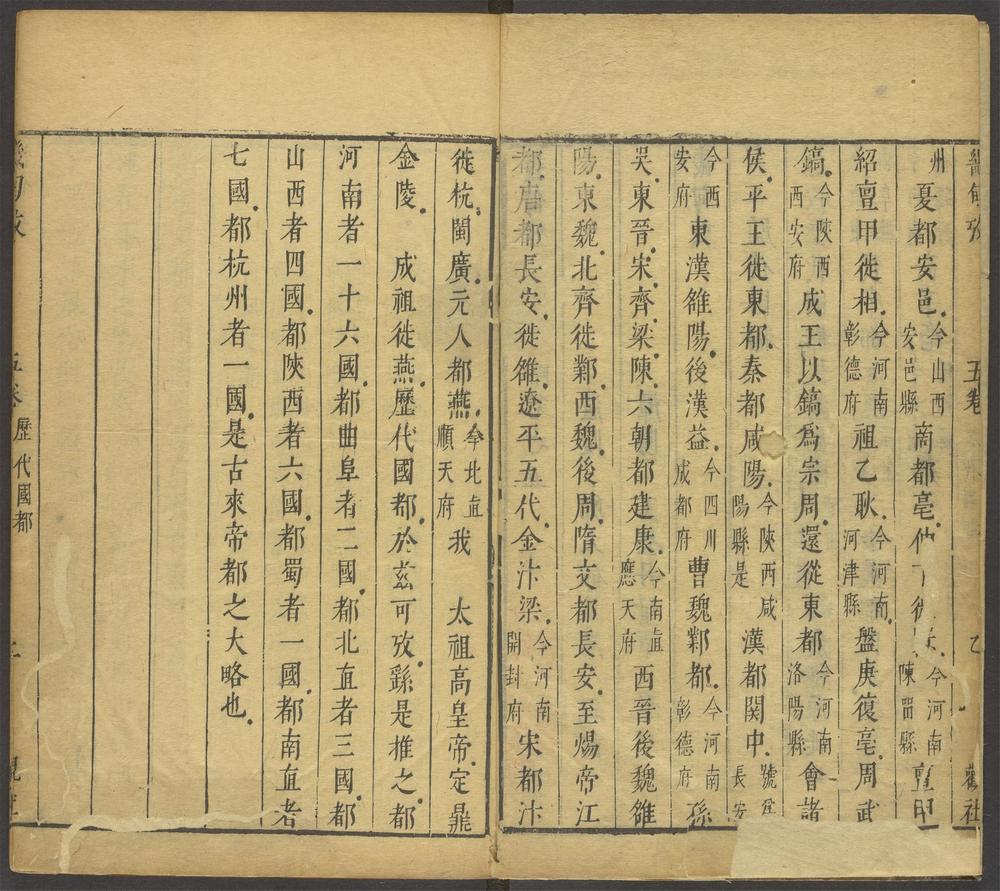 五卷
州　夏都安邑今山西安邑縣商都亳仲丁徙今河南陳留縣亶甲
紹亶甲徙相今河南彰德府祖乙耿今河南河津縣盤庚復亳周武
鎬今陝西西安府成王以鎬爲宗周還從東都今河南洛陽縣會諸
侯平王徙東都秦都咸陽今陝西咸陽縣是漢都関中號爲長安
今西安府東漢雒陽後漢益今四川成都府曹魏鄴都今河南彰德府孫
吳東晉宋齊梁陳六朝都建康今南直應天府西晉後魏雒
陽東魏北齊徙鄴西魏後周隋文都長安至煬帝江
都唐都長安徙雒遼平五代金汴梁今河南開封府宋都汴
徙杭閩廣元人都燕今北直順天府我　太祖高皇帝定鼎
金陵　成祖徙燕歷代國都於茲可攷繇是推之都
河南者一十六國都曲阜者二國都北直者三國都
山西者四國都陝西者六國都蜀者一國都南直者
七國都杭州者一國是古來帝都之大略也
五卷　歷代國都